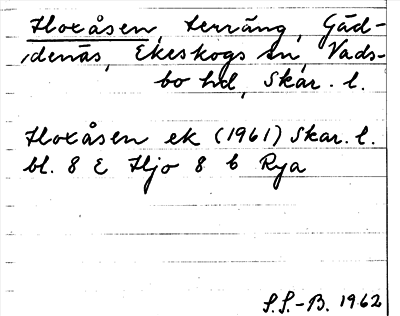 Hoxåsen, terräng, Gäd-
denäs, Ekeskogs sn, Vads-
bo hd, Skar. l.
Hoxåsen ek (1961) Skar. l.
bl. 8 E Hjo 8 b Rya
S.S.-B. 1962